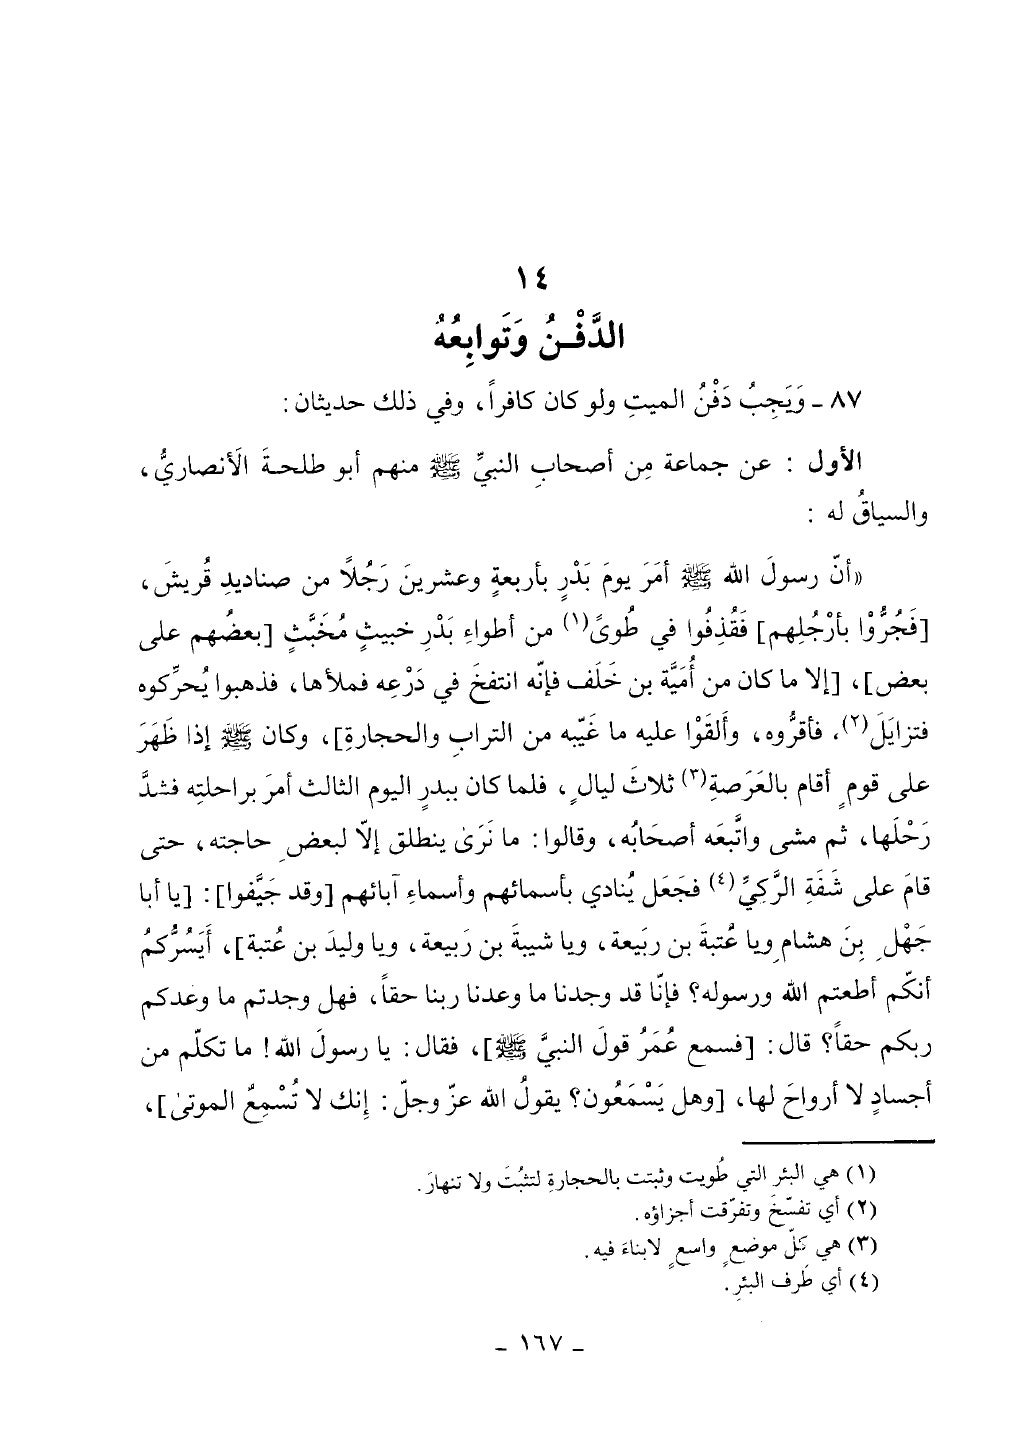 ١٤
الدَّفْنُ وَتَوابِعُهُ
٨٧ ـ وَيَجِبُ دَفْنُ الميتِ ولو كان كافراً، وفي ذلك حديثان:
الأول : عن جماعة مِن أصحابِ النبيِّ ﷺ منهم أبو طلحةَ الَأنصاريُّ،
والسياقُ له :
«أنّ رسولَ الله ﷺ أمَرَ يومَ بَدْرٍ بأربعةٍ وعشرينَ رَجُلًا من صناديدِ قُريشَ،
[فَجُرُّوْا بأرْجُلِهم] فَقُذِفُوا في طُوىً(١) من أطواءِ بَدْرِ خبيثٍ مُخَبَّثٍ [بعضُهم على
بعض]، [إلا ما كان من أُمَيَّة بن خَلَف فإنّه انتفخَ في دَرْعِه فملأها، فذهبوا يُحرِّكوه
فتزايَلَ(٢)، فأقرُّوه، وأَلقَوْا عليه ما غَيّبه من الترابِ والحجارةِ]، وكان ﷺ إذا ظَهَرَ
على قومٍ أقام بالعَرَصةِ(٣) ثلاثَ ليالٍ، فلما كان ببدرٍ اليوم الثالث أمرَ براحلتِه فشدَّ
رَحْلَها، ثم مشى واتَّبعَه أصحَابُه، وقالوا: ما نَرَىٰ ينطلق إلّا لبعضِ حاجته، حتى
قامَ على شَفَةِ الرَّكِيِّ(٤) فجَعَل يُنادي بأسمائهم وأسماءِ آبائهم [وقد جَيَّفوا]: [يا أبا
جَهْلِ بِنَ هشامِ ويا عُتبةَ بن ربَيعة، ويا شيبةَ بن رَبيعة، ويا وليدَ بن عُتبة]، أَيَسُرُّكمُ
أنكّم أطعتم الله ورسوله؟ فإنّا قد وجدنا ما وعدنا ربنا حقاً، فهل وجدتم ما وعدكم
ربكم حقاً؟ قال: [فسمع عُمَرُ قولَ النبيَّ ﷺ]، فقال: يا رسولَ الله! ما تكلّم من
أجسادٍ لا أرواحَ لها، [وهل يَسْمَعُون؟ يقولُ الله عزّ وجلّ: إنك لا تُسْمِعُ الموتىٰ]،
(١) هي البئر التي طُويت وثبتت بالحجارةِ لتثبُتَ ولا تنهارَ.
(٢) أي تفسّخَ وتفرّقت أجزاؤه.
(٣) هي كلّ موضعٍ واسعٍ لابناءَ فيه.
(٤) أي طَرف البئرِ.
ـ ١٦٧ ـ